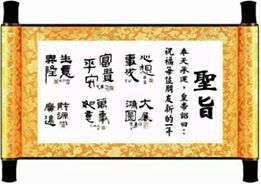 聖旨
奉天承運，皇帝詔曰：
祝福每位朋友新的一年
心想事成
大展鴻圖
富貴平安
萬事如意
生意興隆
財源廣進